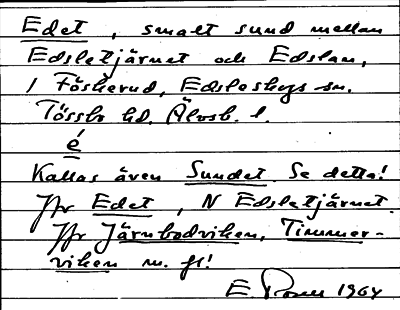 Edet, smalt sund mellan
Edsletjärnet och Edslan,
i Föskerud, Edsleskogs sn.
Tössbo hd. Älvsb. l.
é
Kallas även Sundet. Se detta!
Jfr Edet, N Edsletjärnet.
Jfr Järnbodviken, Timmer-
viken m. fl!
E. 1964